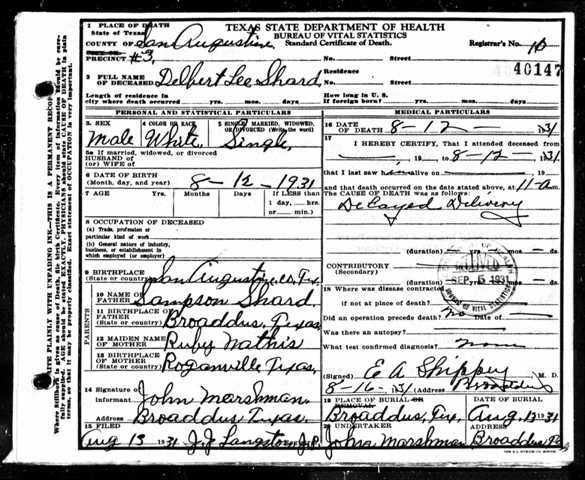 1 PLACE OF DEATH
State of Texas,
TEXAS STATE DEPARTMENT OF HEALTH
BUREAU OF VITAL STATISTICS
COUNTY OF San Augustine Standard Certificate of Death. Registrar's No. 16
PRECINCT #3. No. Street
40147
2 FULL NAME OF DECEASED Delbert Lee Shard Residence No. Street
Length of residence in city where death occurred. yrs. mos. days. How long in U. S. if foreign born? yrs. mos. days.
PERSONAL AND STATISTICAL PARTICULARS
3. SEX Male
4 COLOR OR RACE White
5 SINGLE, MARRIED, WIDOWED, OR DIVORCED (Write the word) Single,
5a If married, widowed, or divorced
HUSBAND OF
(or) WIFE OF
6 DATE OF BIRTH
(Month, day, and year) 8-12-1931
7 AGE Years Months Days If LESS than
1 day, hrs.
or min.
8 OCCUPATION OF DECEASED
(a) Trade, profession or
particular kind of work
(b) General nature of industry,
business, or establishment in
which employed (or employer)
9 BIRTHPLACE
(State or country) San Augustine co, Tex,
PARENTS
10 NAME OF FATHER Sampson Shard.
11 BIRTHPLACE OF FATHER
(State or country) Broaddus, Texas
12 MAIDEN NAME OF MOTHER Ruby Mathis
13 BIRTHPLACE OF MOTHER
(State or country) Roganville Texas.
14 Signature of
Informant John Marshman.
Address Broaddus Texas.
15 FILED
Aug 13 1931 J. J. Langston J.P.
MEDICAL PARTICULARS
16 DATE
OF DEATH 8-12-1931
17
I HEREBY CERTIFY, That I attended deceased
from , 19 to 8-12-, 1931
that I last saw him alive on , 19
and that death occurred on the date stated above, at 11-am.
The CAUSE OF DEATH was as follows:
Decayed Delivery
(duration) yrs. mos. ds.
CONTRIBUTORY
(Secondary)
(duration) yrs. mos. ds.
SEP 5 1931
BUREAU OF VITAL STATISTICS
18 Where was disease contracted
if not at place of death?
Did an operation precede death? No Date of
Was there an autopsy?
What test confirmed diagnosis? none
(Signed) E A Shippy M. D.
8-16-1931 (Address) Broaddus
19 PLACE OF BURIAL OR REMOVAL Broaddus, Tex,
DATE OF BURIAL Aug, 13 1931
20 UNDERTAKER John Marshman
ADDRESS Broaddus